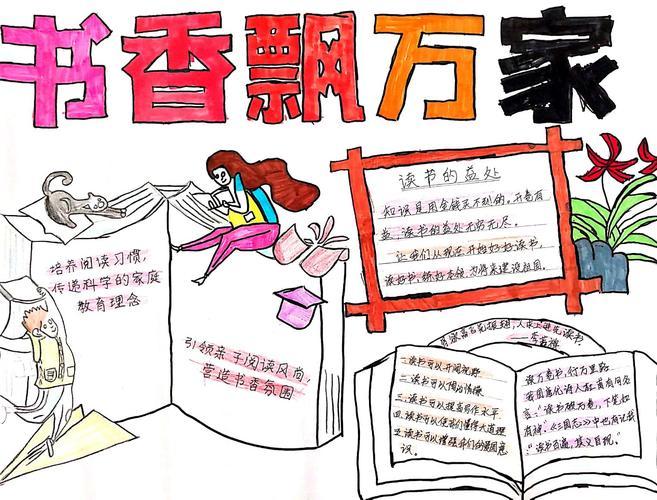 书香飘万家
培养阅读习惯,
传递科学的家庭
教育理念
引领亲子阅读风尚,
营造书香氛围
读书的益处
知识是用金钱买不到的,开卷有
益,读书的益处无穷无尽。
让我们从现在开始好好读书,
读好书,练好本领,为将来建设祖国。
鸟欲高飞先振翅,人求上进先读书
——李若禅
一.读书可以开阔视野
二.读书可以陶冶情操
三.读书可以提高写作水平
四.读书可以使我们懂得大道理
五.读书可以增强我们的爱国意
识。
读万卷书,行万里路
我国唐代诗人杜甫有句名
言:“读书破万卷,下笔如
有神。《三国志》中也有记载
“读书百遍,其义自现。”